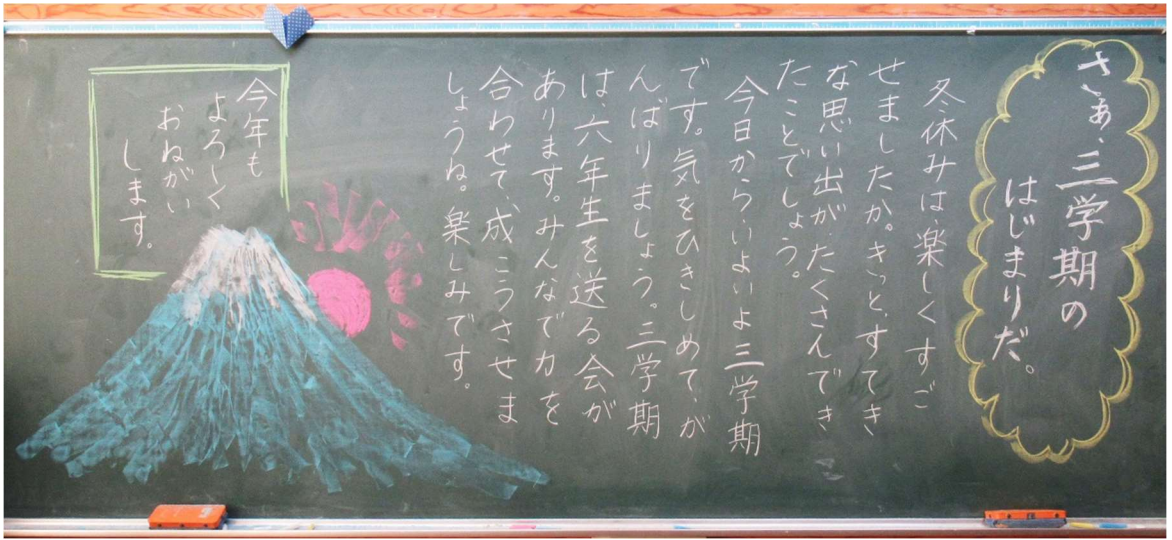 さぁ、三学期の
はじまりだ。
冬休みは、楽しくすご
せましたか。きっと、すてき
な思い出が、たくさんでき
たことでしょう。
今日から、いよいよ三学期
です。気をひきしめて、が
んばりましょう。三学期
は、六年生を送る会が
あります。みんなで力を
合わせて、成こうさせま
しょうね。楽しみです。
今年も
よろしく
おねがい
します。